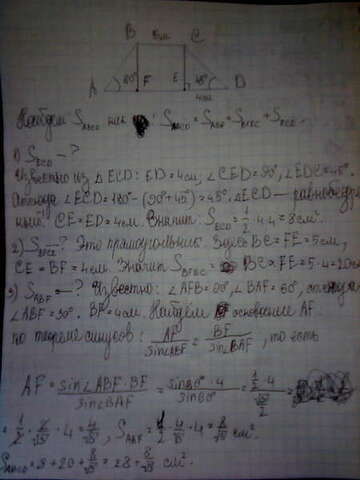 B 5см C
A 60° F E 45° D
4см
Найдем S_ABCD как : S_ABCD = S_ABF + S_BFEC + S_ECD.
1) S_ECD - ?
Известно из △ECD: ED = 4см, ∠CED = 90°, ∠EDC = 45°.
Отсюда ∠ECD = 180 - (90° + 45°) = 45°. △ECD — равнобедрен
ный. CE = ED = 4см. Значит S_ECD = 1/2 · 4 · 4 = 8см².
2) S_BFEC - ? Это прямоугольник. Здесь BC = FE = 5см,
CE = BF = 4см. Значит S_BFEC = BF × FE = 5·4 = 20см
3) S_ABF - ? Известно: ∠AFB = 90°, ∠BAF = 60°, отсюда
∠ABF = 30°. BF = 4см. Найдем основание AF
по теореме синусов: AF/sin∠ABF = BF/sin∠BAF, то есть
AF = sin∠ABF · BF / sin∠BAF = sin30° · 4 / sin60° = 1/2 · 4 / √3/2 =
= 1/2 · 2/√3 · 4 = 4/√3, S_ABF = 1/2 · 4/√3 · 4 = 8/√3 см².
S_ABCD = 8 + 20 + 8/√3 = 28 + 8/√3 см².